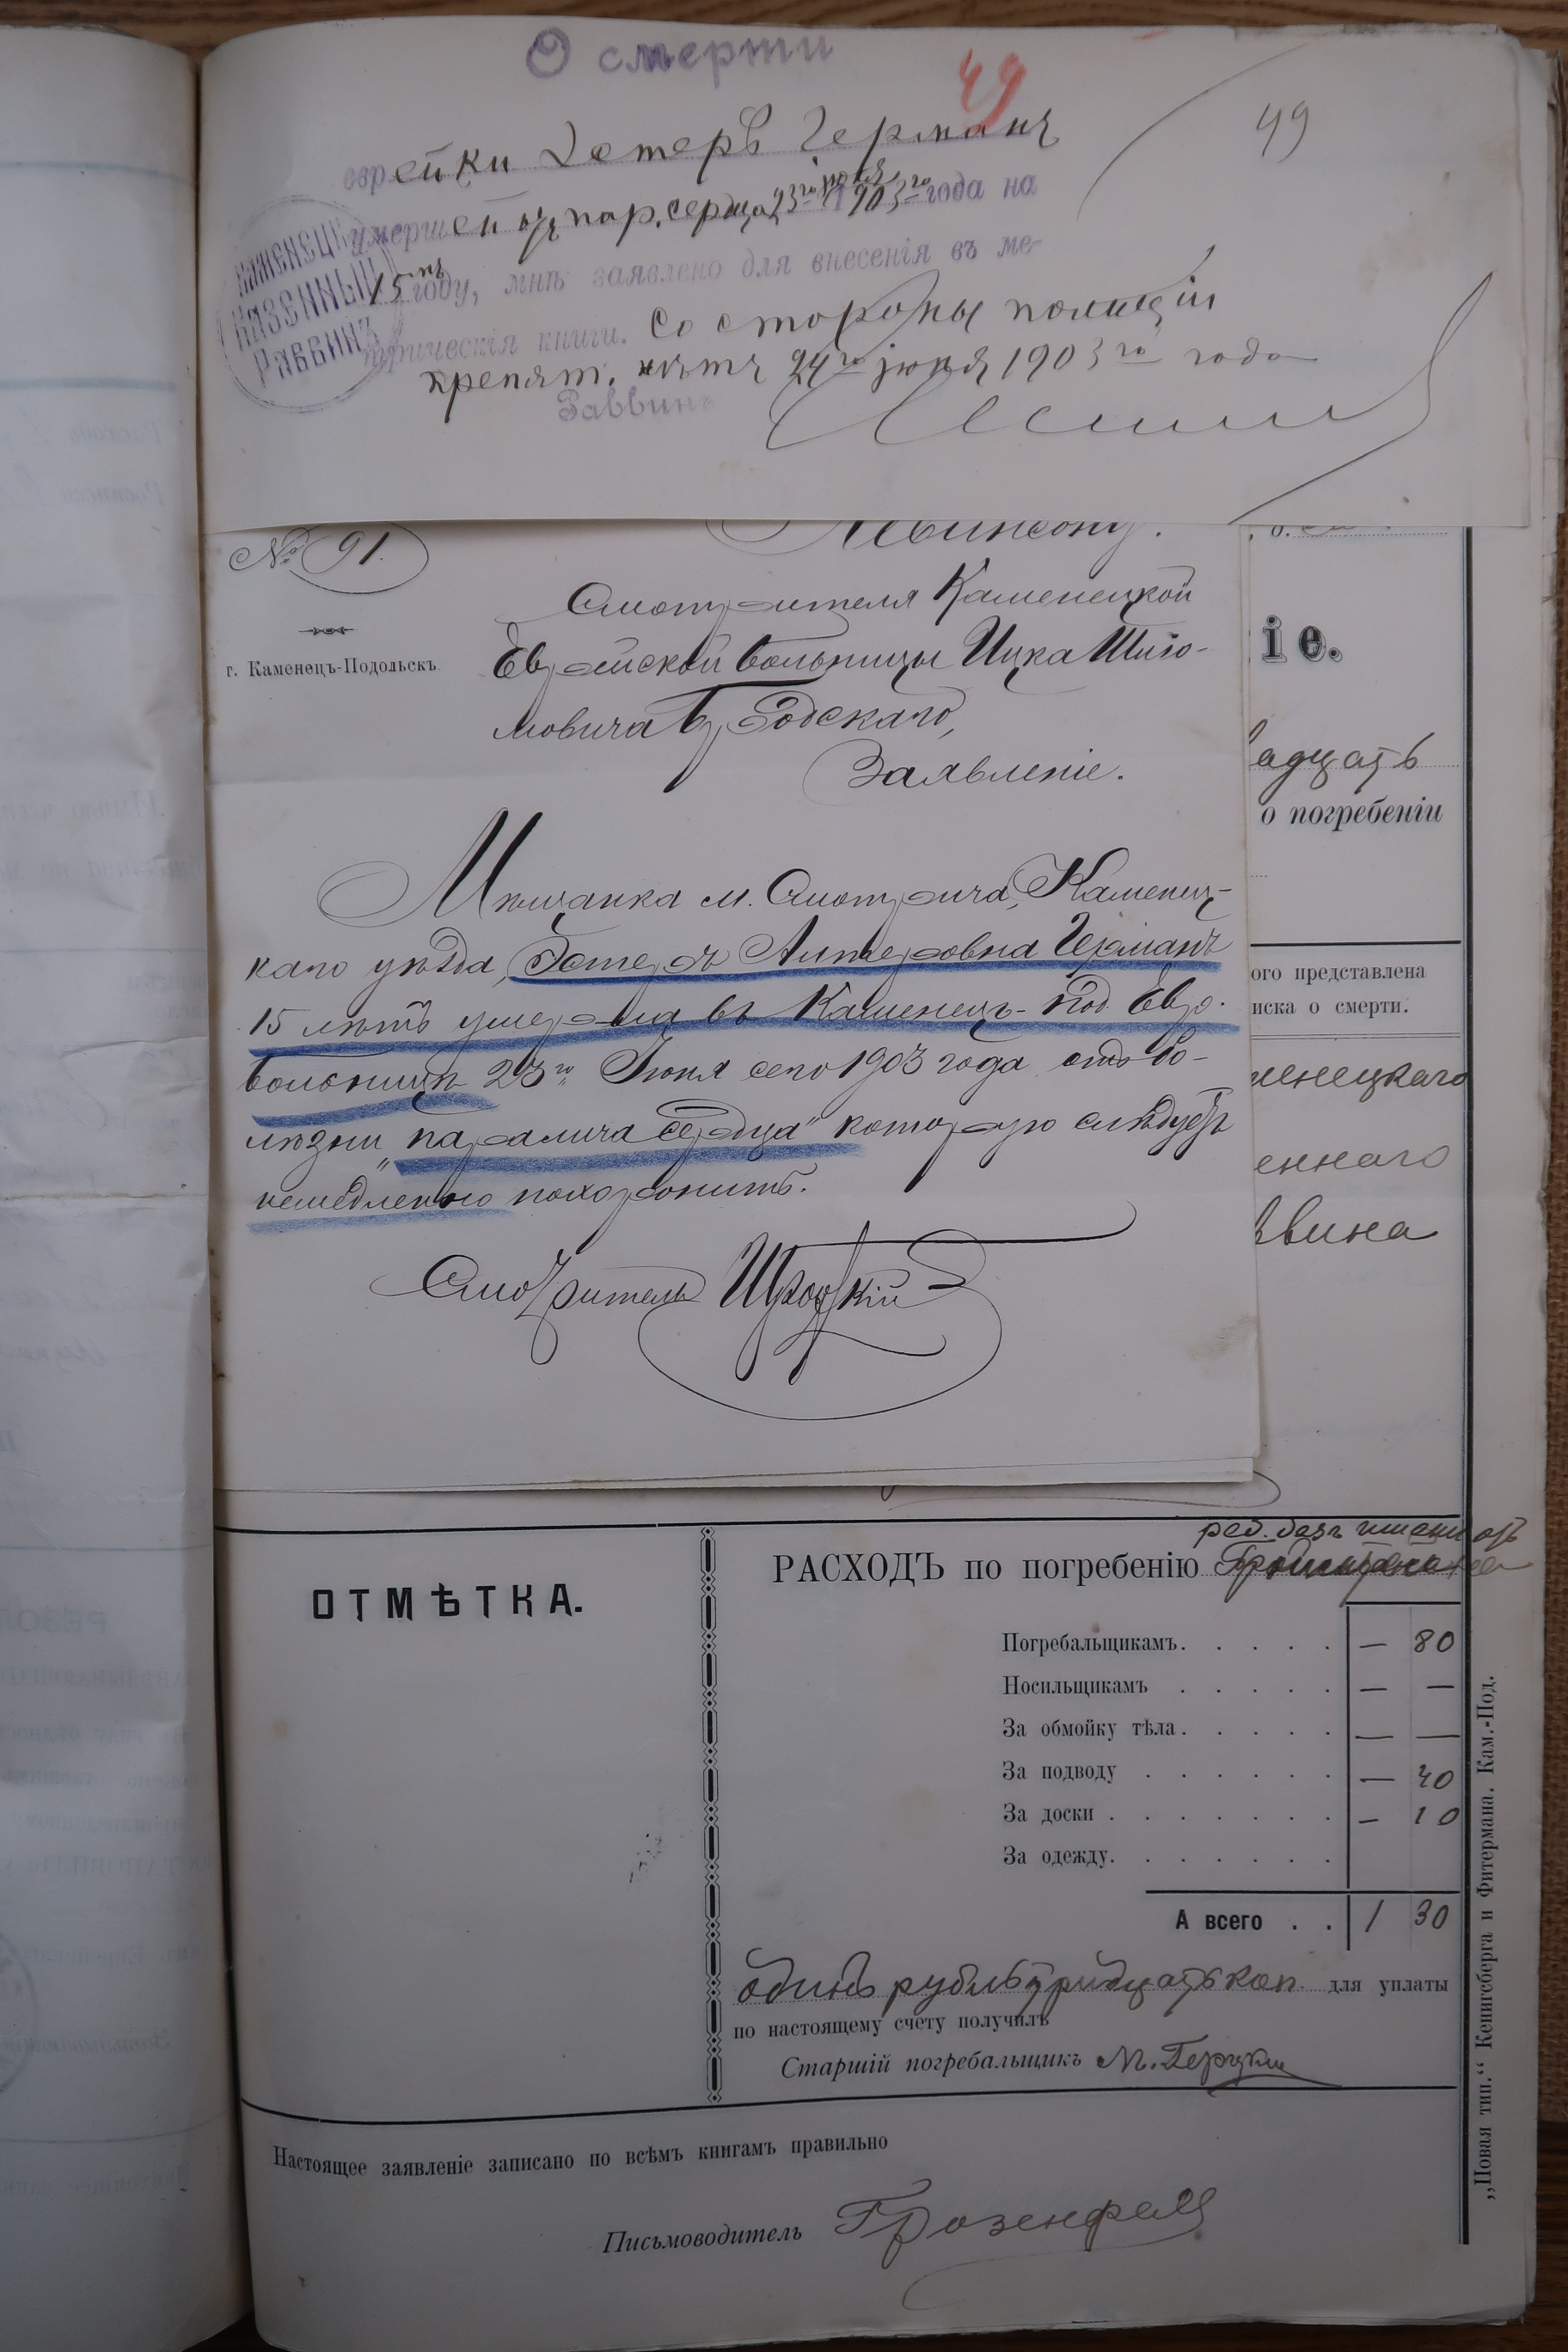 О смерти
49
49
еврейки Эстеръ Германъ
умершей отъ пар. сердца 23го іюня 1903го года на
15мъ году, мнѣ заявлено для внесенія въ ме-
трическія книги. Со стороны полиціи
препят. нѣтъ 24го іюня 1903го года
Раввинъ
КАМЕНЕЦКІЙ
КАЗЕННЫЙ
РАВВИНЪ
№ 91.
г. Каменецъ-Подольскъ
Смотрителя Каменецкой
Еврейской больницы Ицка Шліо-
мовича Бродскаго,
Заявленіе.
Мѣщанка м. Смотрича, Каменец-
каго уѣзда, Эстеръ Алтеровна Германъ
15 лѣтъ умерла въ Каменецъ-Под. Евр.
больницѣ 23го Іюня сего 1903 года отъ бо-
лѣзни „паралича сердца" которую слѣдуетъ
немедленно похоронить.
Смотритель
іе.
адцать
о погребеніи
ого представлена
иска о смерти.
менецкаго
еннаго
ввина
ОТМѢТКА.
реб. безъ имени отъ
РАСХОДЪ по погребенію
Погребальщикамъ. . . . . — 80
Носильщикамъ . . . . . — —
За обмойку тѣла. . . . . — —
За подводу . . . . . . — 40
За доски . . . . . . . — 10
За одежду. . . . . . .
А всего . . 1 30
одинъ рубль тридцать коп. для уплаты
по настоящему счету получилъ
Старшій погребальщикъ М.
Настоящее заявленіе записано по всѣмъ книгамъ правильно
Письмоводитель
„Новая тип." Кенигсберга и Фитермана. Кам.-Под.